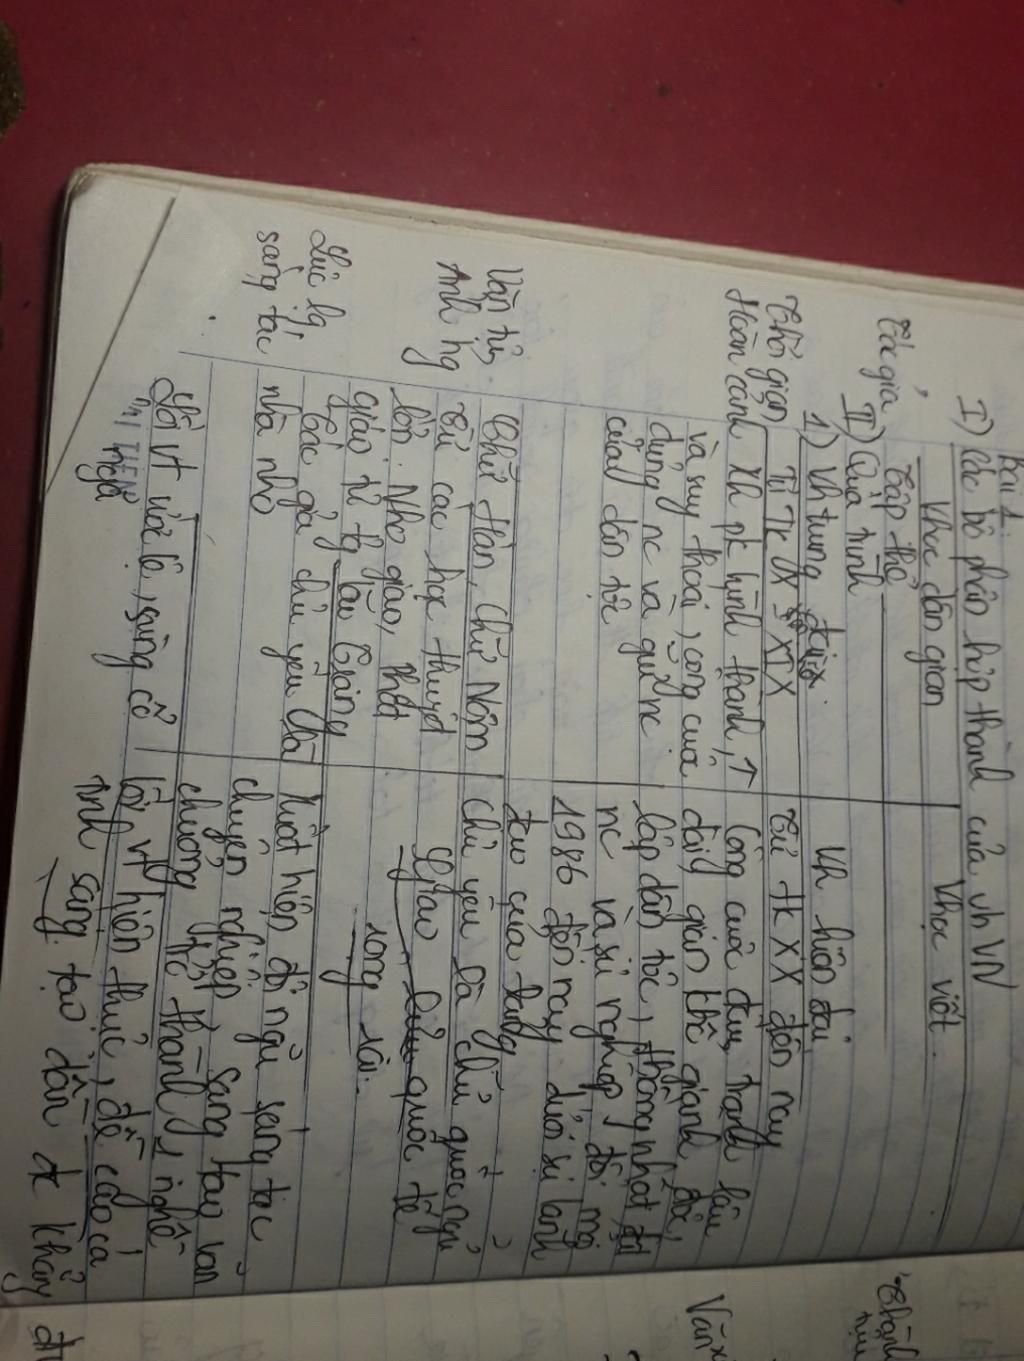 Bài 1:
I) Các bộ phận hợp thành của vh VN
Vhọc dân gian Vhọc viết.
Tác giả Tập thể
II) Quá trình
1) Vh trung đại Vh hiện đại
Thời gian Từ TK X - XIX Từ tk XX đến nay
Hoàn cảnh Xh pk hình thành, ↑ Công cuộc đấu tranh lâu
và suy thoái, công cuộc dài, gian khổ giành độc
dựng nc và giữ nc lập dân tộc, thống nhất đất
của dân tộc nc và sự nghiệp đổi mới
1986 đến nay dưới sự lãnh
đạo của Đảng
Văn tự Chữ Hán, Chữ Nôm Chủ yếu là chữ quốc ngữ
Ảnh hg Từ các học thuyết Giao lưu quốc tế
lớn: Nho giáo, Phật rộng rãi.
giáo, tư tg Lão Trang
Lực lg Tác giả chủ yếu là Xuất hiện đội ngũ sáng tác
sáng tác nhà nho chuyên nghiệp, sáng tác văn
chương trở thành 1 nghề
Lối vt ước lệ, sùng cổ Lối vt hiện thực, đề cao cá
tính sáng tạo dần đc khẳng
Thành
Văn x